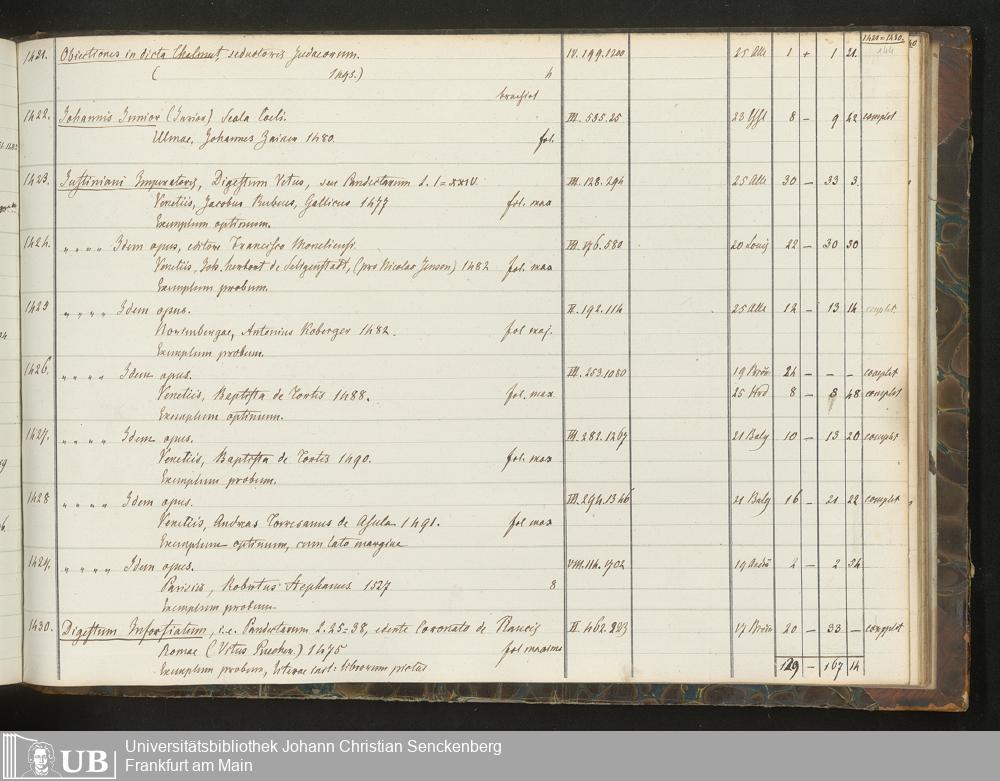 1421=1430.
144
1421. Obiectiones in dicta Thalmut, seductoris Judaeorum. IV. 199.1200 25 Alle 1 + 1 21.
( 1495.) 4
1422. Johannis Junior (Iunior) Scala Coeli. III. 535.25 8 — 9 42 complet
Ulmae, Johannes Zainer 1480. fol.
1423. Justiniani Imperatoris, Digestum Vetus, seu Pandectarum L. I=XXIV. III. 128.294 25 Alle 30 — 33 3.
Venetiis, Jacobus Rubeus, Gallicus 1477 fol. max
Exemplum optimum.
1424. " " " " Idem opus, editore Francisco Moneliensi. III. 176.580 20 Louis 22 — 30 30
Venetiis, Joh. Herbort de Seligenstadt, (pro Nicolao Jenson) 1482 fol. max
Exemplum probum.
1425 " " " " Idem opus. II. 192.114 25 Alle 12 — 13 14 complet
Norembergae, Antonius Koberger 1482. fol maj.
Exemplum probum.
1426. " " " " Idem opus. III. 253.1080 19 24 — — — complet
Venetiis, Baptista de Tortis 1488. fol. max 25 8 — 8 48 complet
Exemplum optimum.
1427. " " " " Idem opus. III. 282.1267 21 Balg 10 — 13 20 complet
Venetiis, Baptista de Tortis 1490. fol. max
Exemplum probum.
1428 " " " " Idem opus. III. 294.1346 21 Balg 16 — 21 22 complet
Venetiis, Andreas Torresanus de Asula 1491. fol max
Exemplum optimum, cum lato margine
1429. " " " " Idem opus. VIII. 114. 1702 19 2 — 2 54
Parisiis, Robertus Stephanus 1527 8
Exemplum probum
1430. Digestum Infortiatum, i.e. Pandectarum L. 25=38, edente Coronato de Plancis II. 462. 223 17 20 — 33 — complet
Romae (Vitus Puecher.) 1475 fol maximo
Exemplum probum, literae init: librorum pictae 129 — 167 14
UB
Universitätsbibliothek Johann Christian Senckenberg
Frankfurt am Main